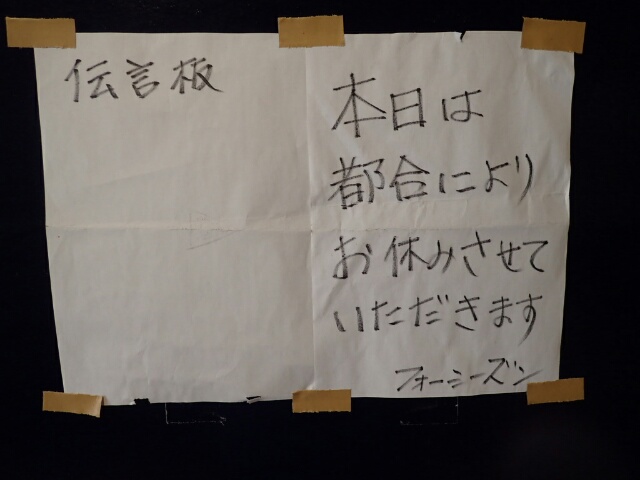 伝言板
本日は
都合により
お休みさせて
いただきます
フォーシーズン